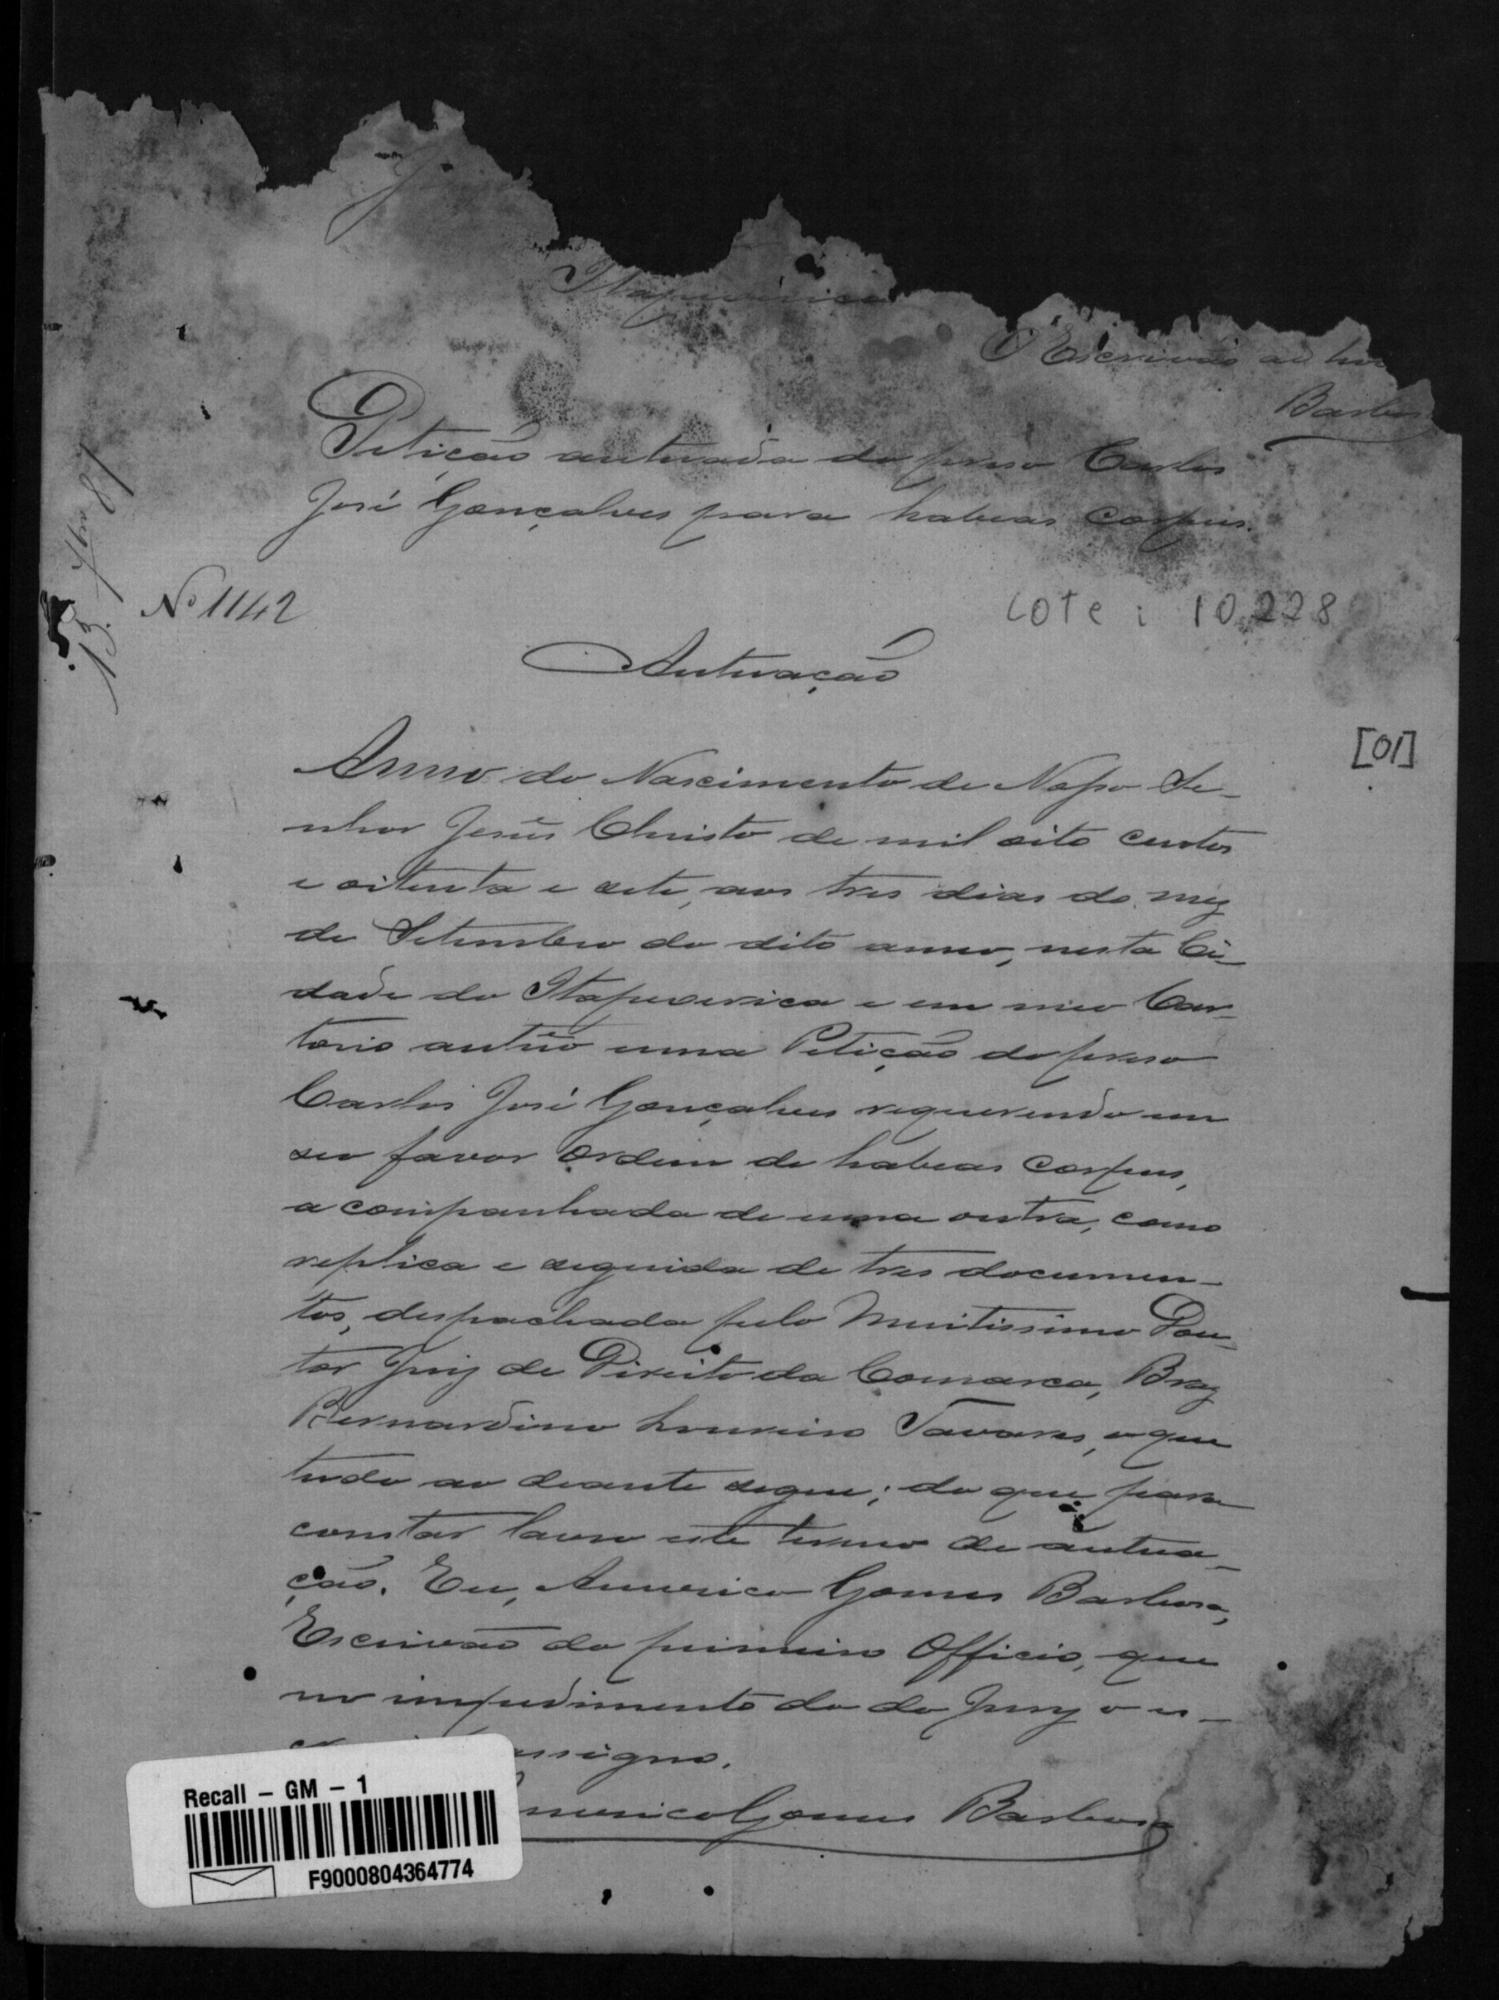 Itapecerica
O Escrivão
Barbosa
Petição autuada do preso Carlos
José Gonçalves para habeas corpus.
13. 7bro 87
Nº 1142
Lote : 10.228
Autuação
[01]
Anno do Nascimento de Nosso Se-
nhor Jesus Christo de mil oito centos
e oitenta e sete, aos tres dias do mez
de Setembro do dito anno, nesta Ci-
dade do Itapecerica e em meu Car-
torio autúo uma Petição do preso
Carlos José Gonçalves requerendo em
seu favor ordem de habeas corpus,
acompanhada de uma outra, como
replica e seguida de tres documen-
tos, despachada pelo Meritissimo Dou-
tor Juiz de Direito da Comarca, Braz
Bernardino Loureiro Tavares, o que
tudo ao deante segue; do que para
constar lavro este termo de autua-
ção. Eu, Americo Gomes Barbosa,
Escrivão do primeiro Officio, que
no impedimento do do Jury o es-
assigno.
Americo Gomes Barbosa
Recall - GM - 1
F9000804364774